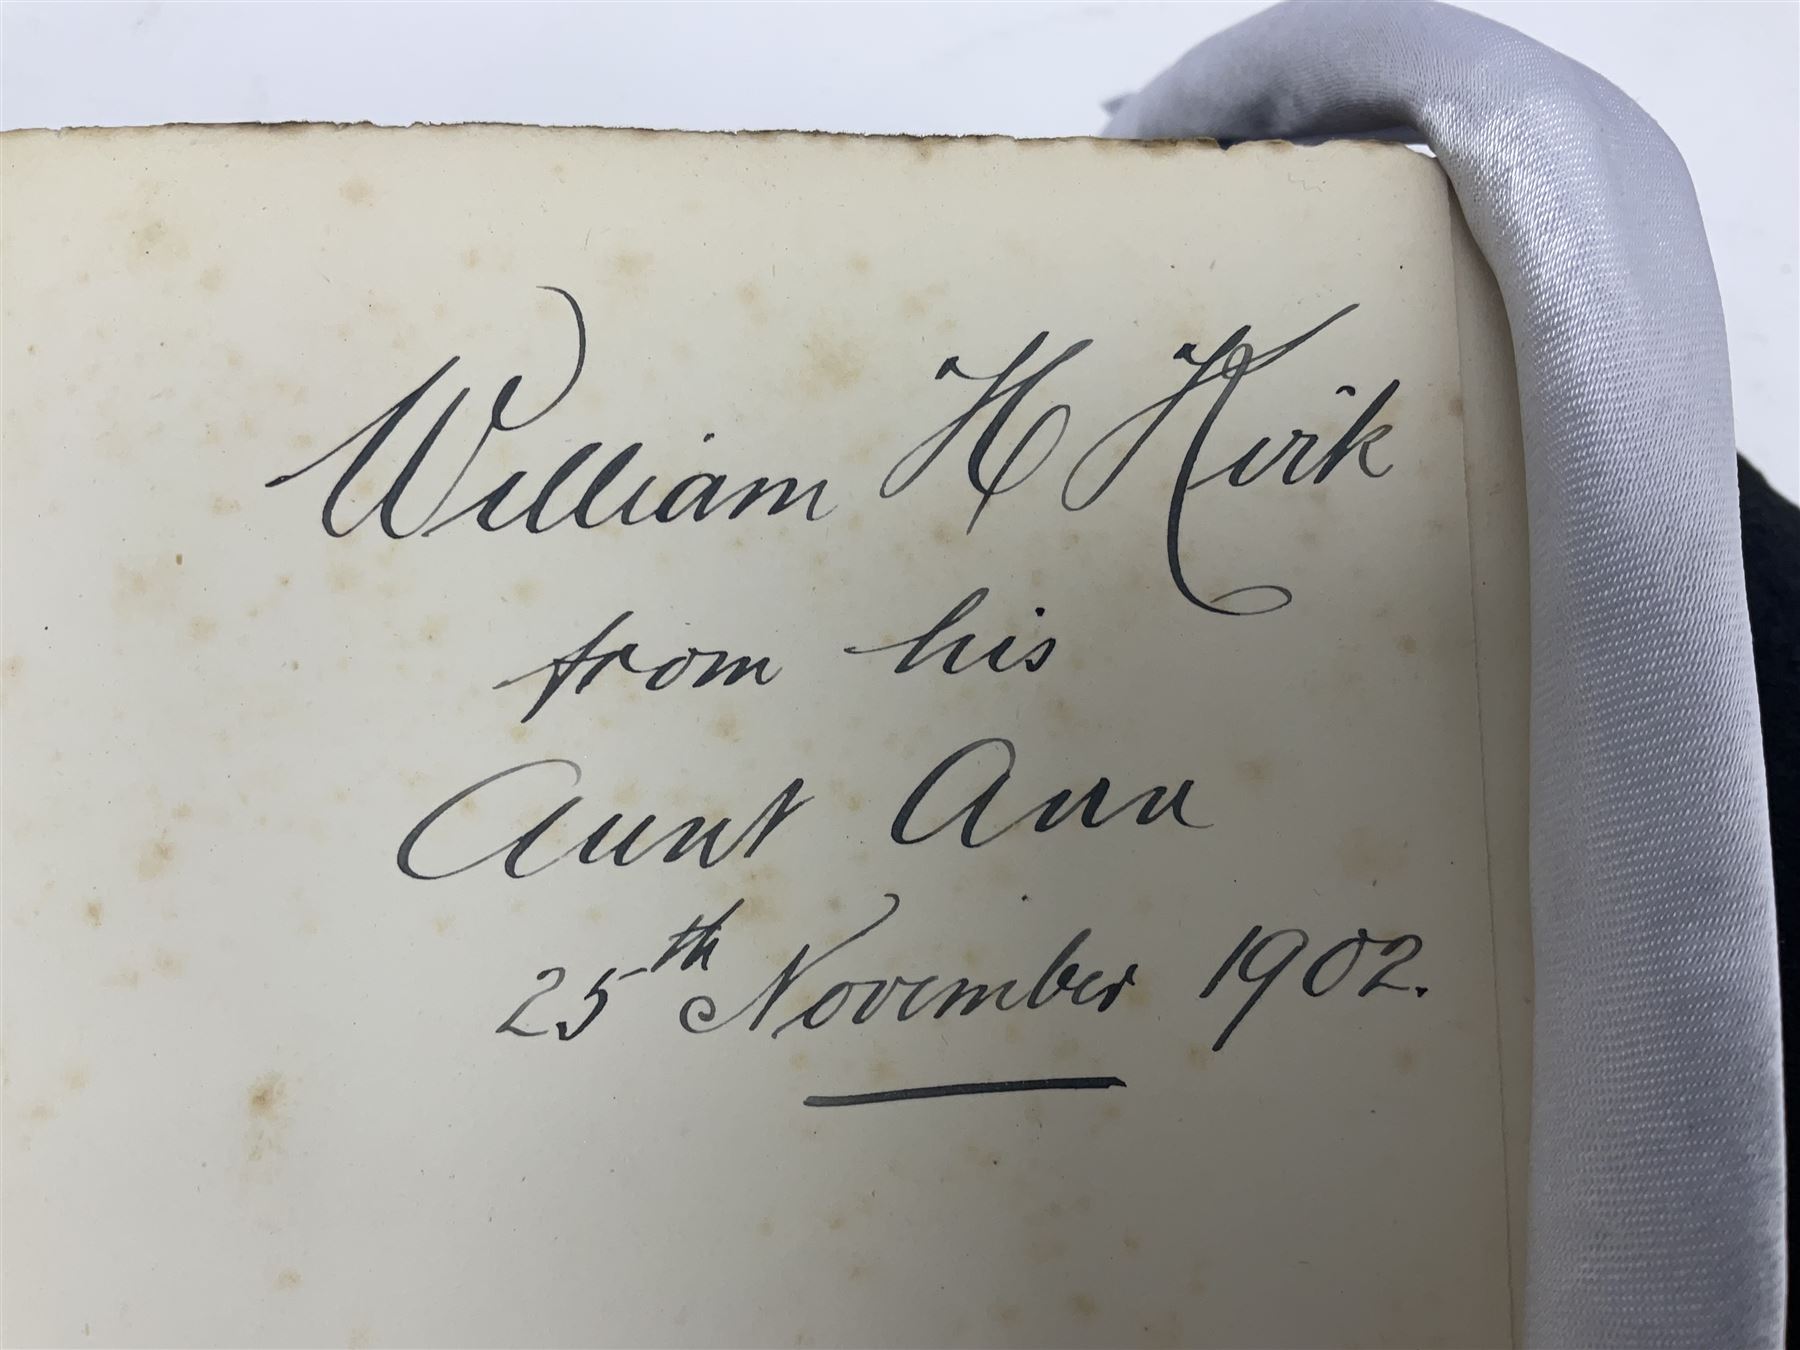 William H Kirk
from his
Aunt Ann
25th November 1902.